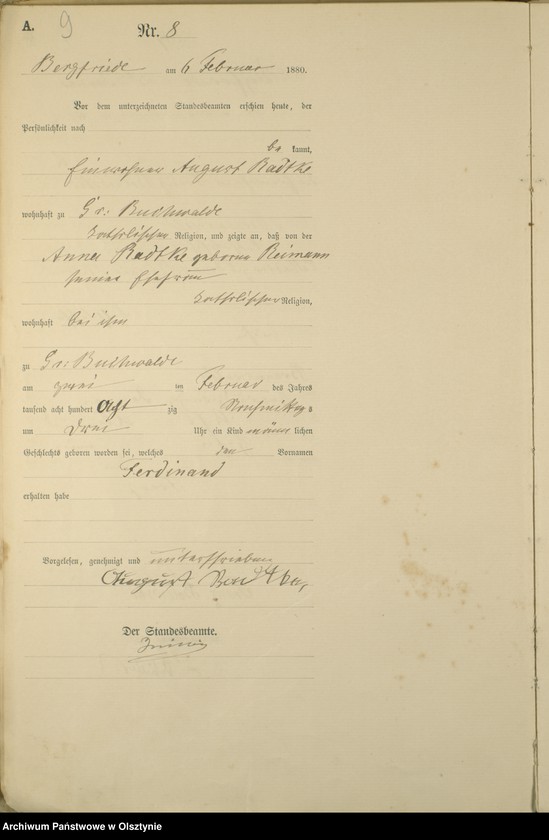 A. 9
Nr. 8
Bergfriede am 6 Februar 1880.
Vor dem unterzeichneten Standesbeamten erschien heute, der
Persönlichkeit nach
be kannt,
Einwohner August Radtke
wohnhaft zu Gr: Buchwalde
katholischer Religion, und zeigte an, daß von der
Anna Radtke geborene Reimann
seiner Ehefrau
katholischer Religion,
wohnhaft bei ihm
zu Gr: Buchwalde
am zwei ten Februar des Jahres
tausend acht hundert acht zig Nachmittags
um drei Uhr ein Kind männ lichen
Geschlechts geboren worden sei, welches den Vornamen
Ferdinand
erhalten habe
Vorgelesen, genehmigt und unterschrieben
August
Der Standesbeamte.
Archiwum Państwowe w Olsztynie